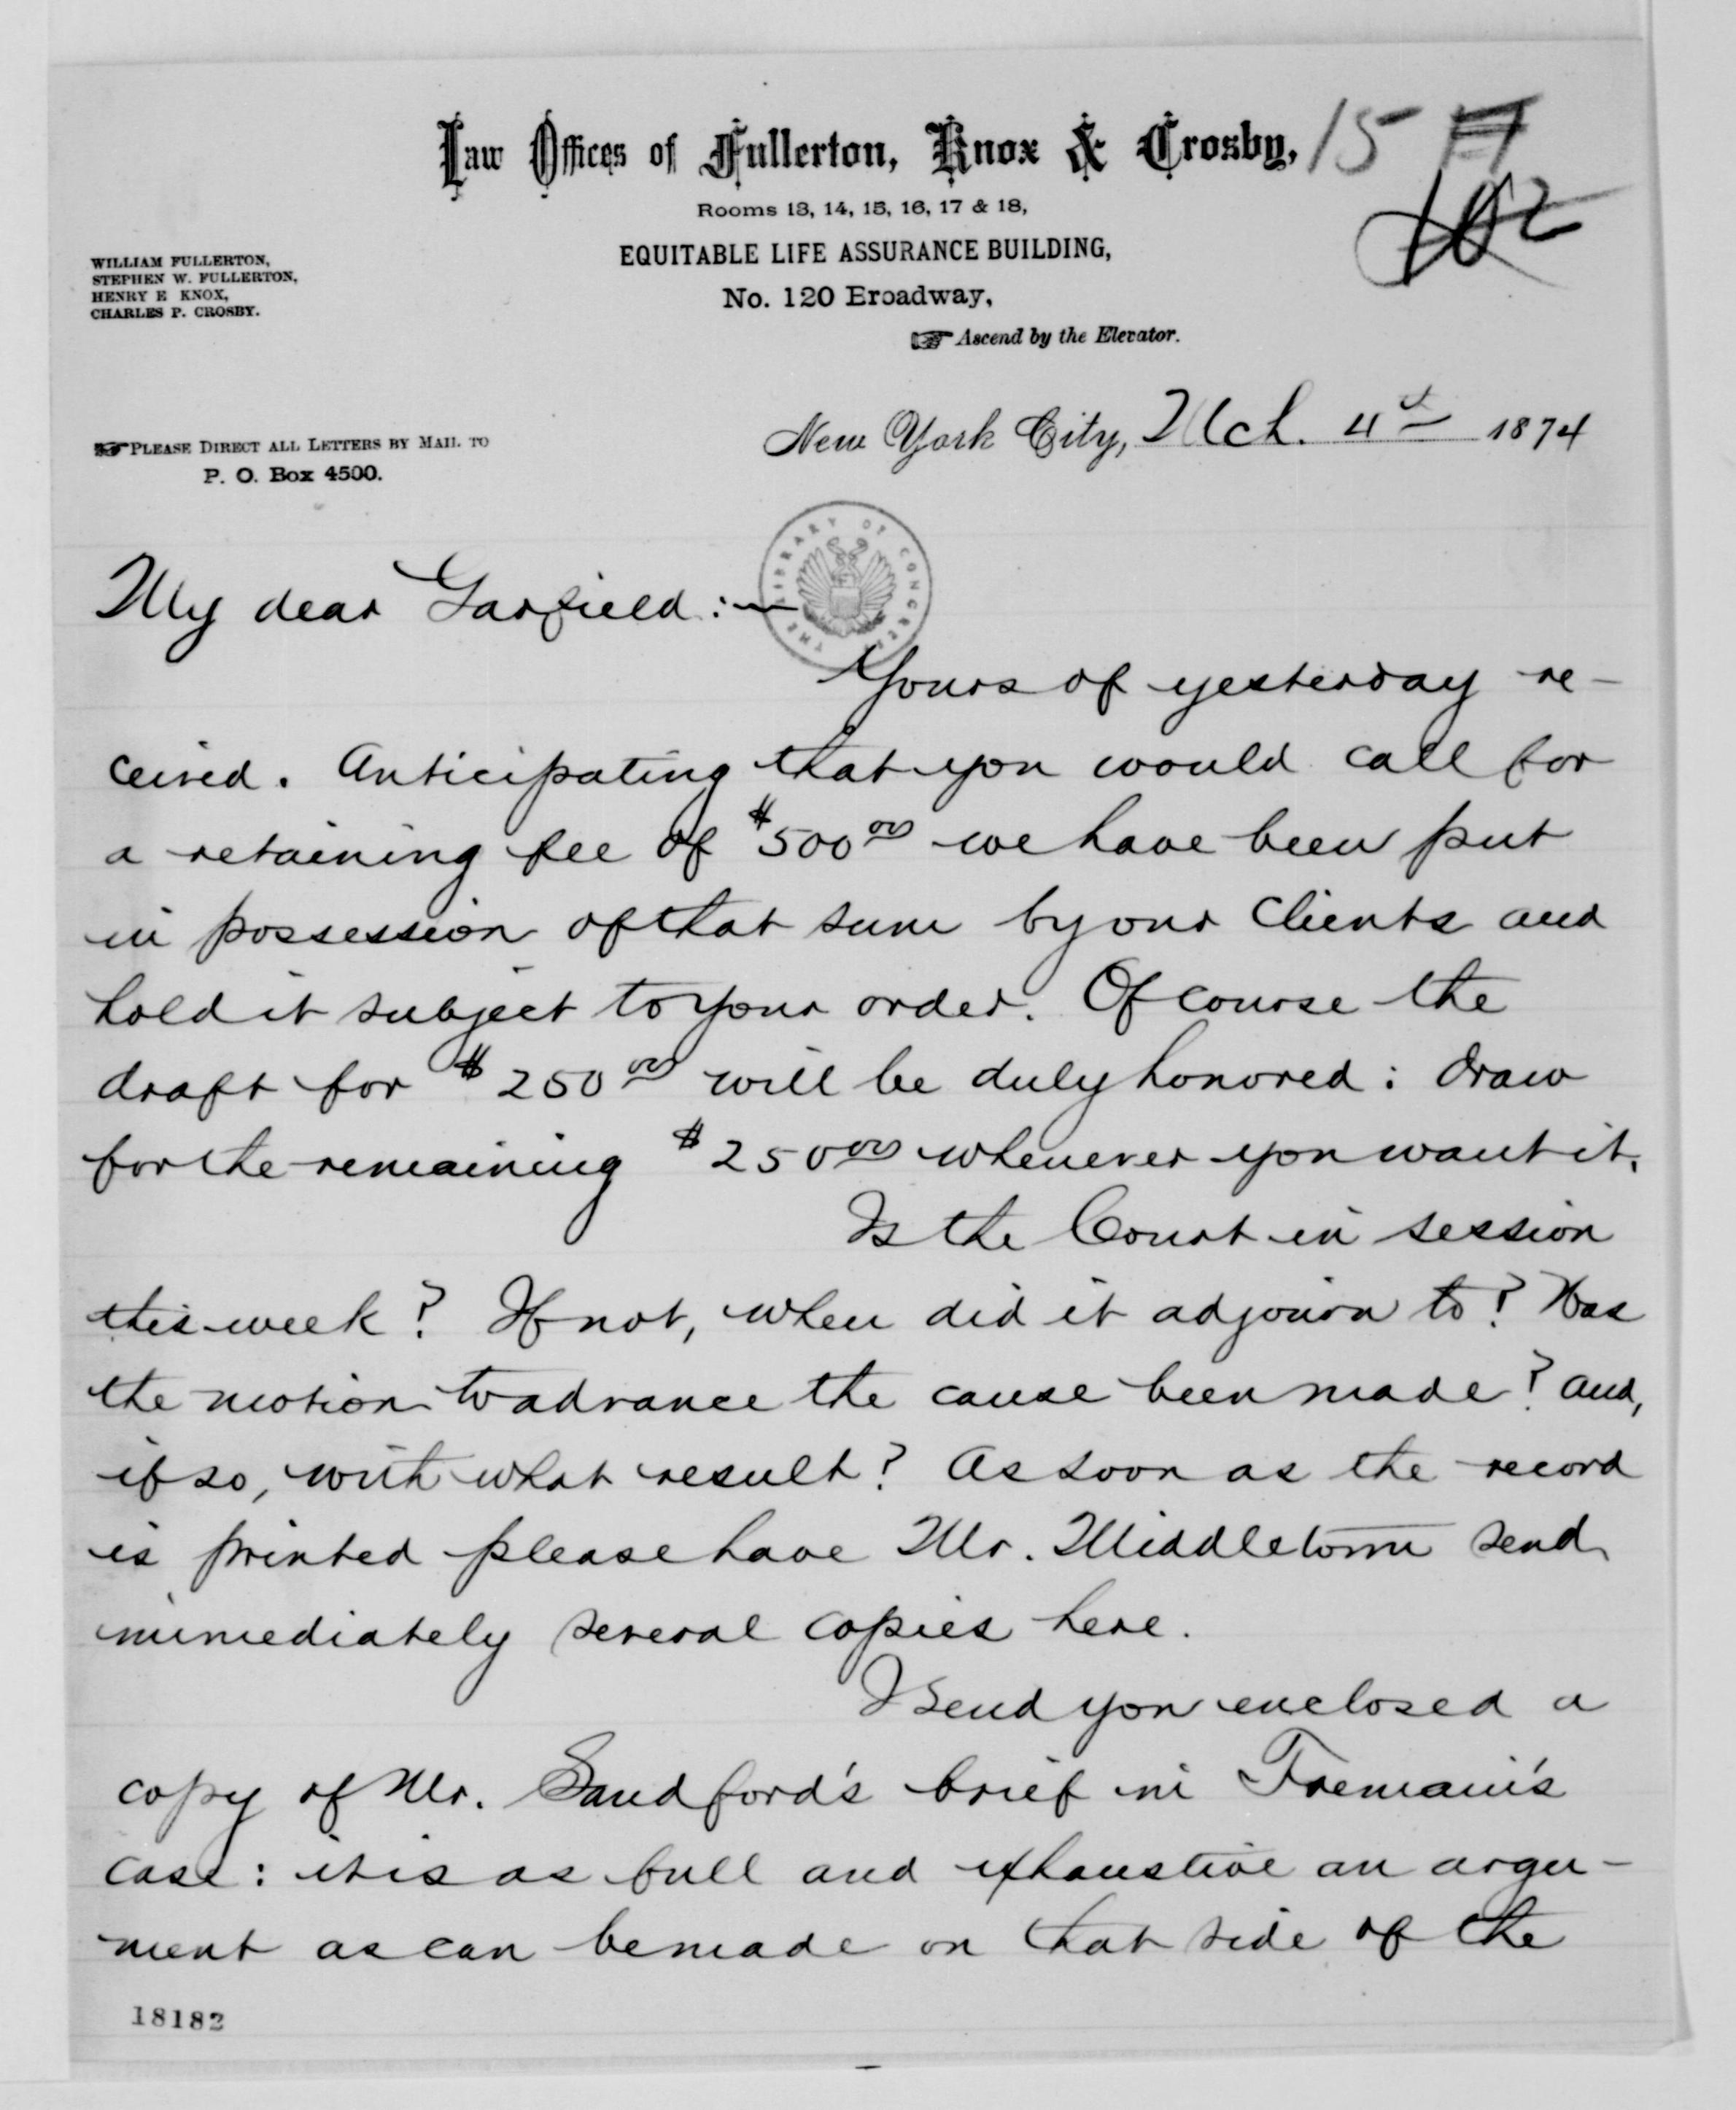 Law Offices of Fullerton, Knox & Crosby,
15 A
Rooms 13, 14, 15, 16, 17 & 18,
EQUITABLE LIFE ASSURANCE BUILDING,
No. 120 Broadway,
☞ Ascend by the Elevator.
WILLIAM FULLERTON,
STEPHEN W. FULLERTON,
HENRY E KNOX,
CHARLES P. CROSBY.
☞ PLEASE DIRECT ALL LETTERS BY MAIL TO
P. O. Box 4500.
New York City, Mch. 4th 1874
THE LIBRARY OF CONGRESS
My dear Garfield:—
Yours of yesterday re-
ceived. Anticipating that you would call for
a retaining fee of $500 00 we have been put
in possession of that sum by our clients and
hold it subject to your order. Of course the
draft for $250 00 will be duly honored: draw
for the remaining $250 00 whenever you want it.
Is the Court in session
this week? If not, when did it adjourn to? Has
the motion to advance the cause been made? and,
if so, with what result? As soon as the record
is printed please have Mr. Middletown send
immediately several copies here.
I send you enclosed a
copy of Mr. Sandford's brief in Tremain's
case: it is as full and exhaustive an argu-
ment as can be made on that side of the
18182